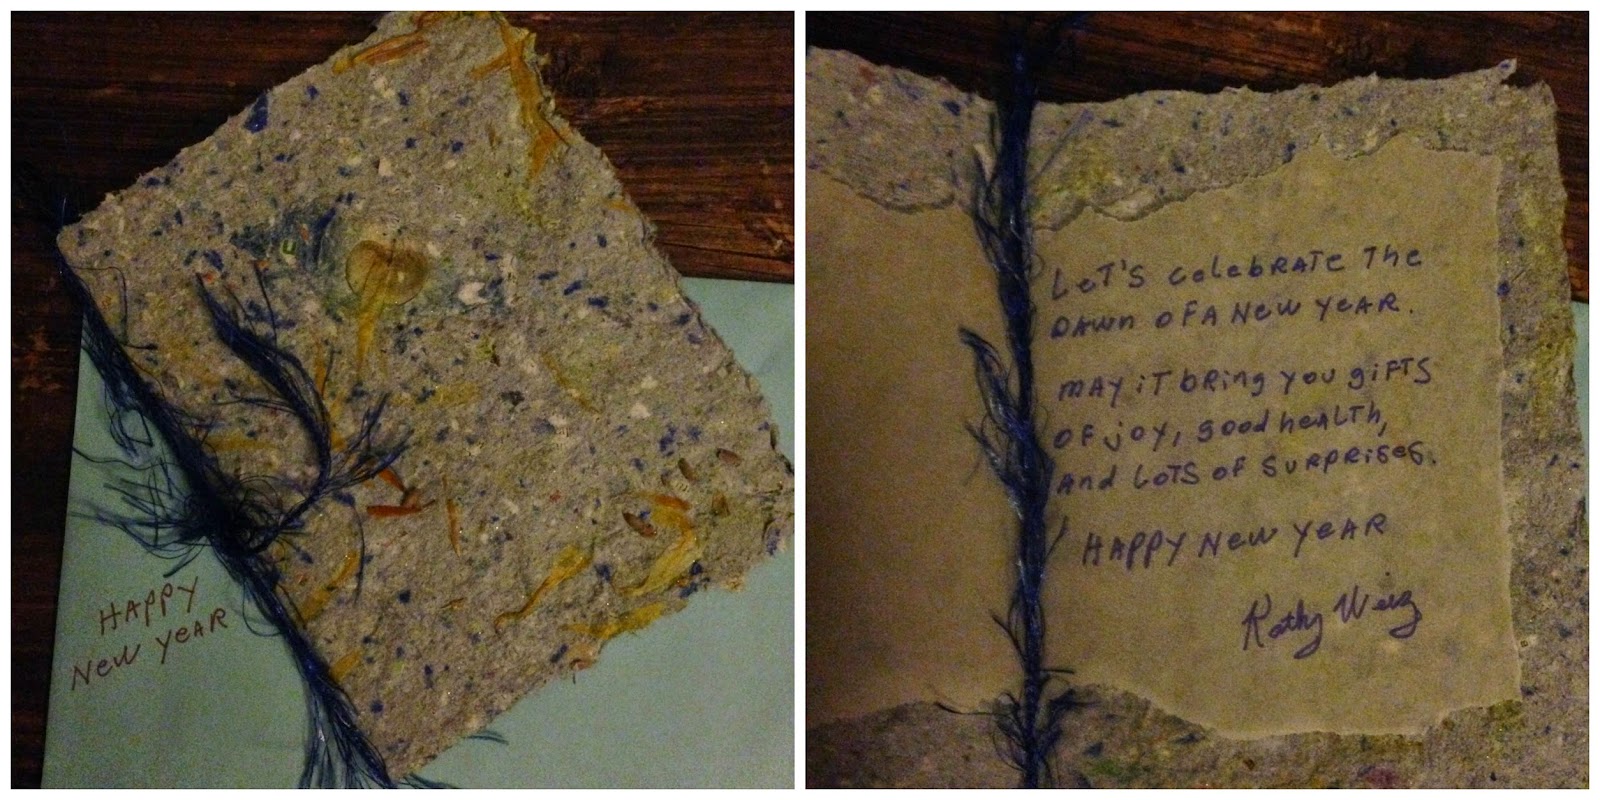 HAPPY
New YeAR
LeT'S CeLebRATe The
DAWn OF A New YeAR.
MAY iT bRing You giFTS
OF joy, good heALTh,
And LoTS oF SURPRiSeS.
HAPPY New YeAR
Kathy Weiz